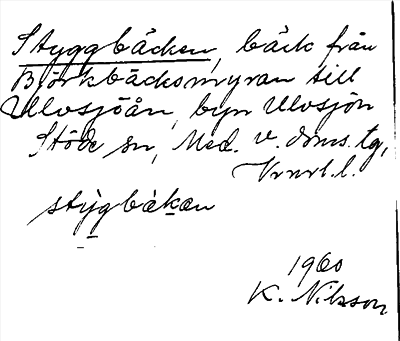 Styggbäcken, bäck från
Björkbäcksmyran till
Ulvsjöån, byn Ulvsjön
Stöde sn, Med. v. doms. tg,
Vnrl.l.
stygbäkan
1960
K. Nilsson